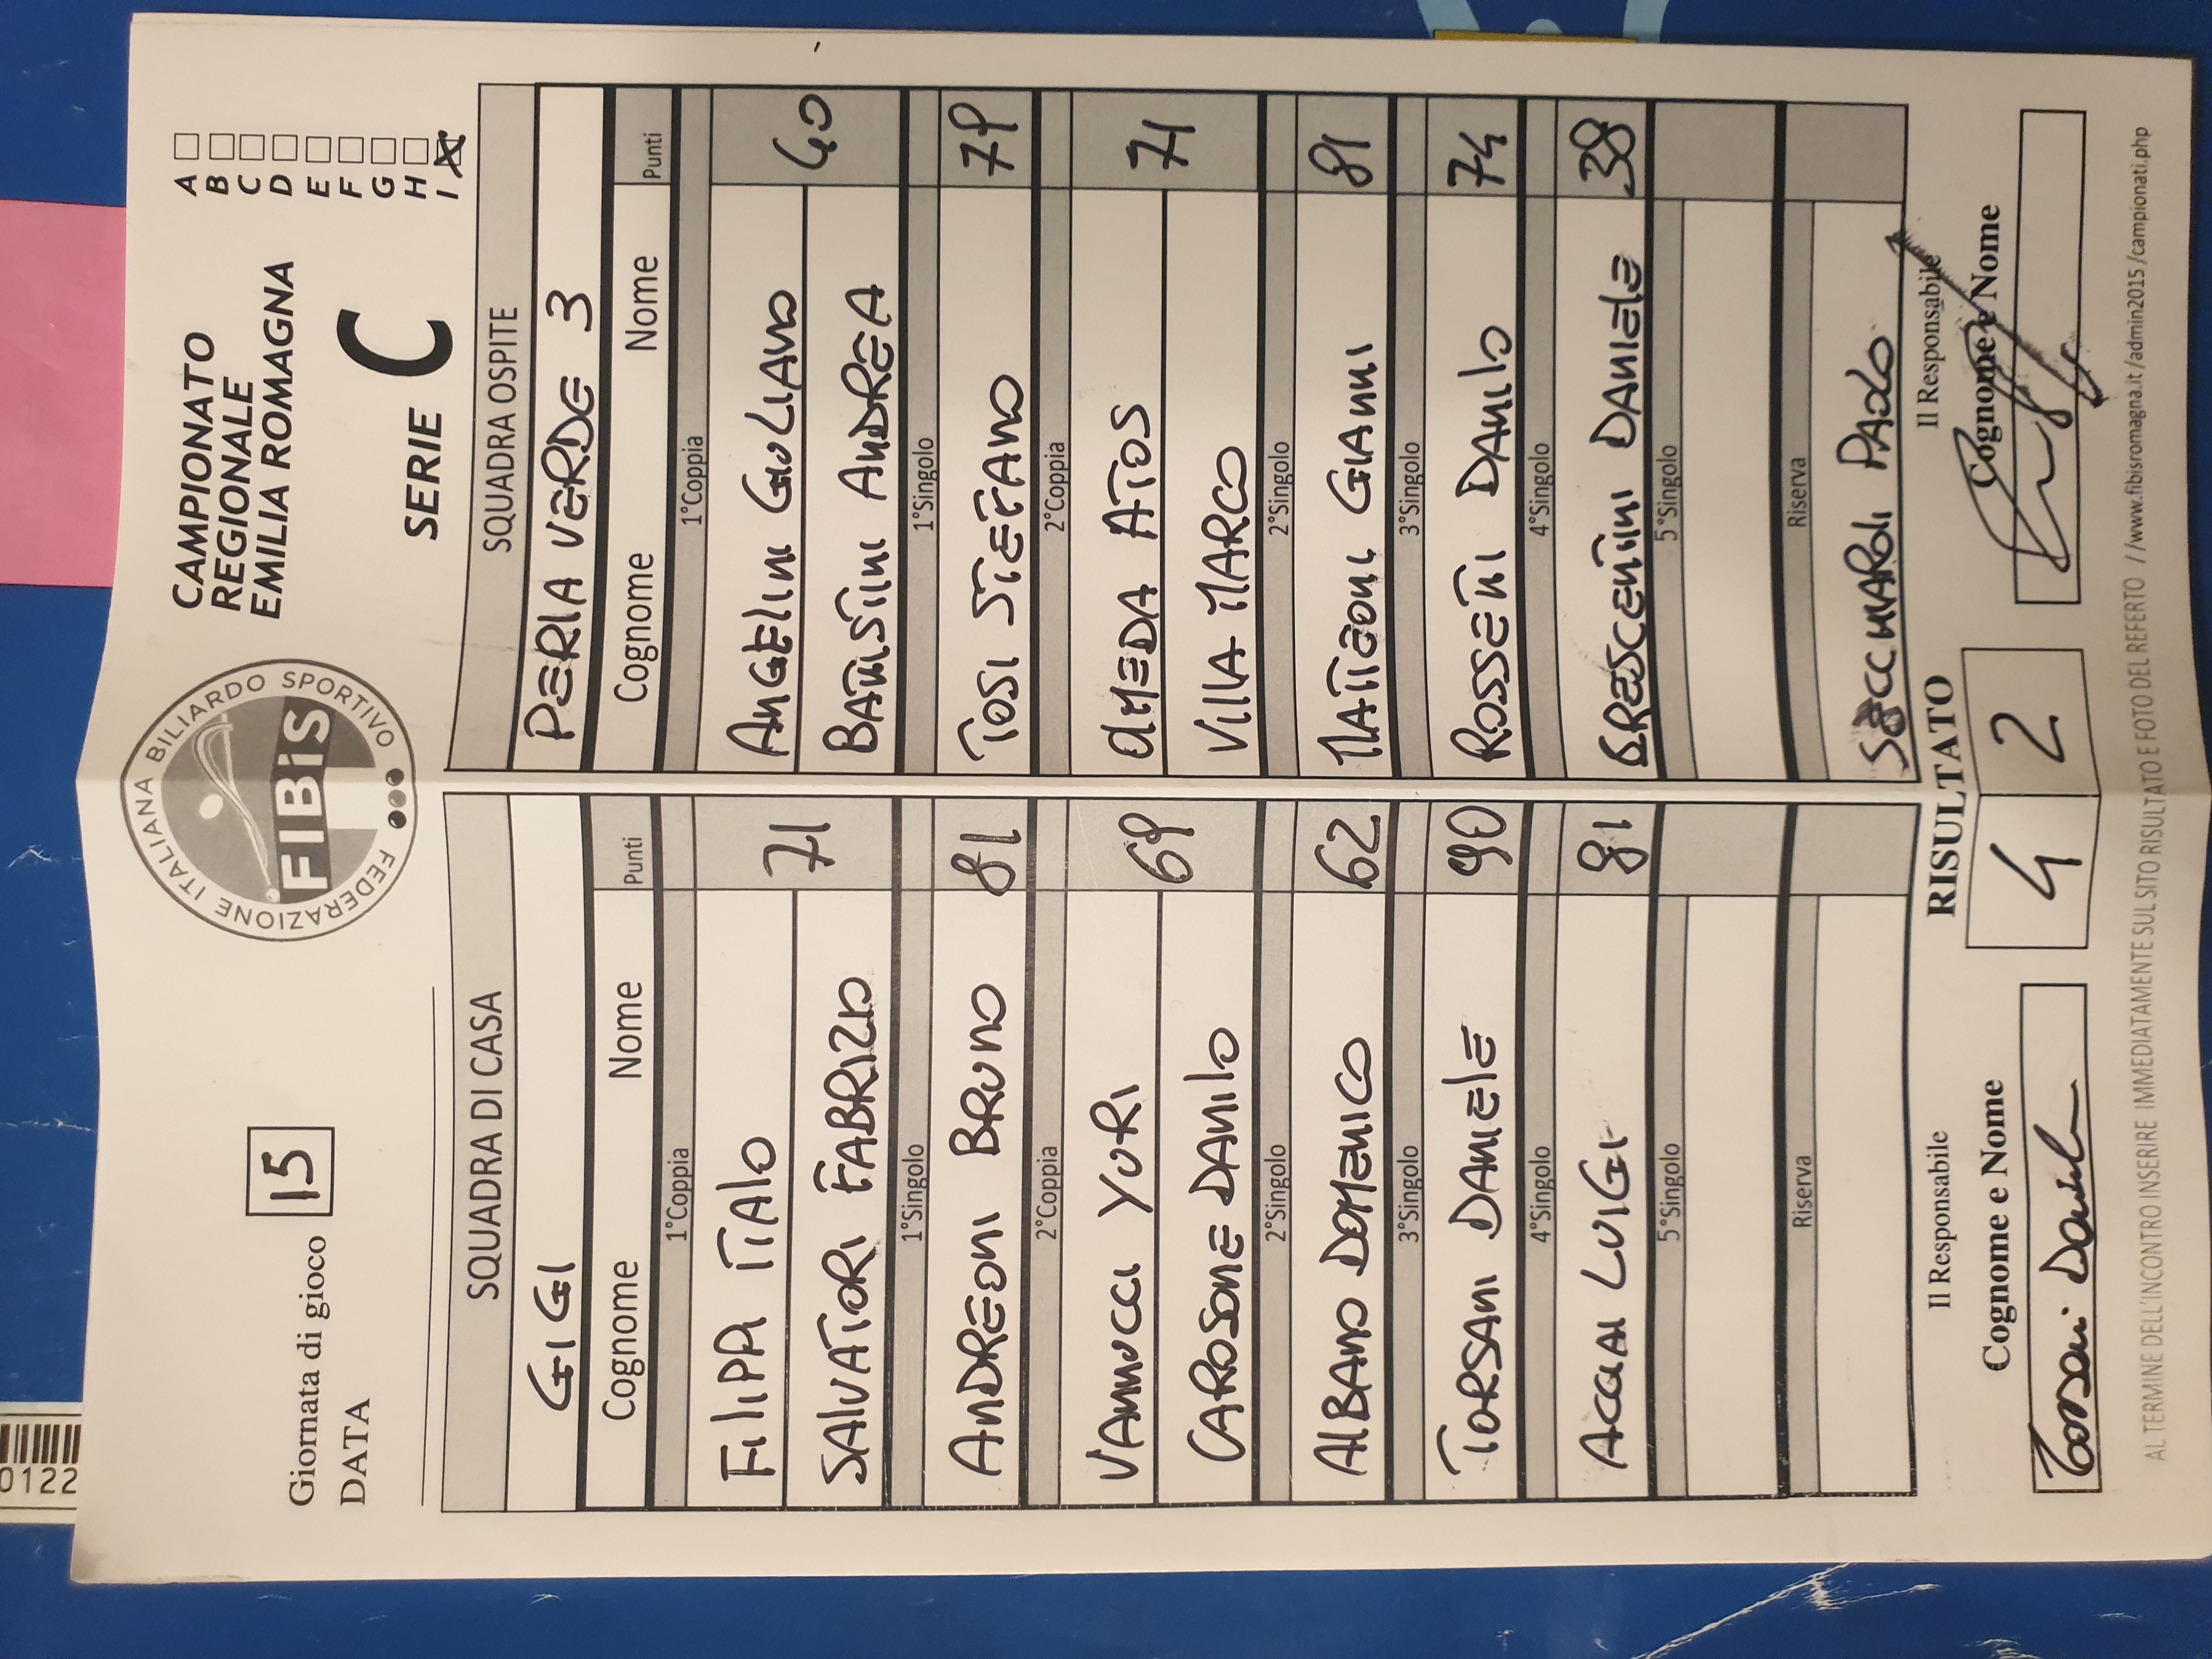 FEDERAZIONE ITALIANA BILIARDO SPORTIVO
FIBiS
Giornata di gioco 15
DATA
CAMPIONATO
REGIONALE
EMILIA ROMAGNA
SERIE C
A
B
C
D
E
F
G
H
I X
SQUADRA DI CASA
GIGI
Cognome Nome Punti
1°Coppia
FILIPPI ITALO 71
SALVATORI FABRIZIO
1°Singolo
ANDREONI BRUNO 81
2°Coppia
VANNUCCI YURI 69
CAROSONE DANILO
2°Singolo
ALBANO DOMENICO 62
3°Singolo
TORSANI DANIELE 90
4°Singolo
ACQUAI LUIGI 81
5°Singolo
Riserva
SQUADRA OSPITE
PERLA VERDE 3
Cognome Nome Punti
1°Coppia
ANGELINI GIULIANO 40
BATTISTINI ANDREA
1°Singolo
TOSI STEFANO 79
2°Coppia
OMEDA ATOS 71
VILLA MARCO
2°Singolo
MATTEONI GIANNI 81
3°Singolo
ROSSETTI DANILO 74
4°Singolo
BRESCENTINI DANIELE 38
5°Singolo
Riserva
PAOLO
Il Responsabile
Cognome e Nome
RISULTATO
4 2
Il Responsabile
Cognome e Nome
AL TERMINE DELL'INCONTRO INSERIRE IMMEDIATAMENTE SUL SITO RISULTATO E FOTO DEL REFERTO //www.fibisromagna.it/admin2015/campionati.php
0122